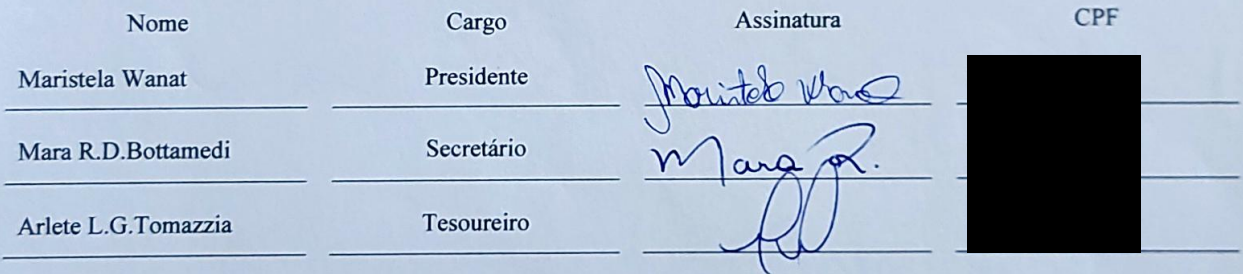 Nome Cargo Assinatura CPF
Maristela Wanat Presidente Maristela Wanat
Mara R.D.Bottamedi Secretário Mara R.
Arlete L.G.Tomazzia Tesoureiro